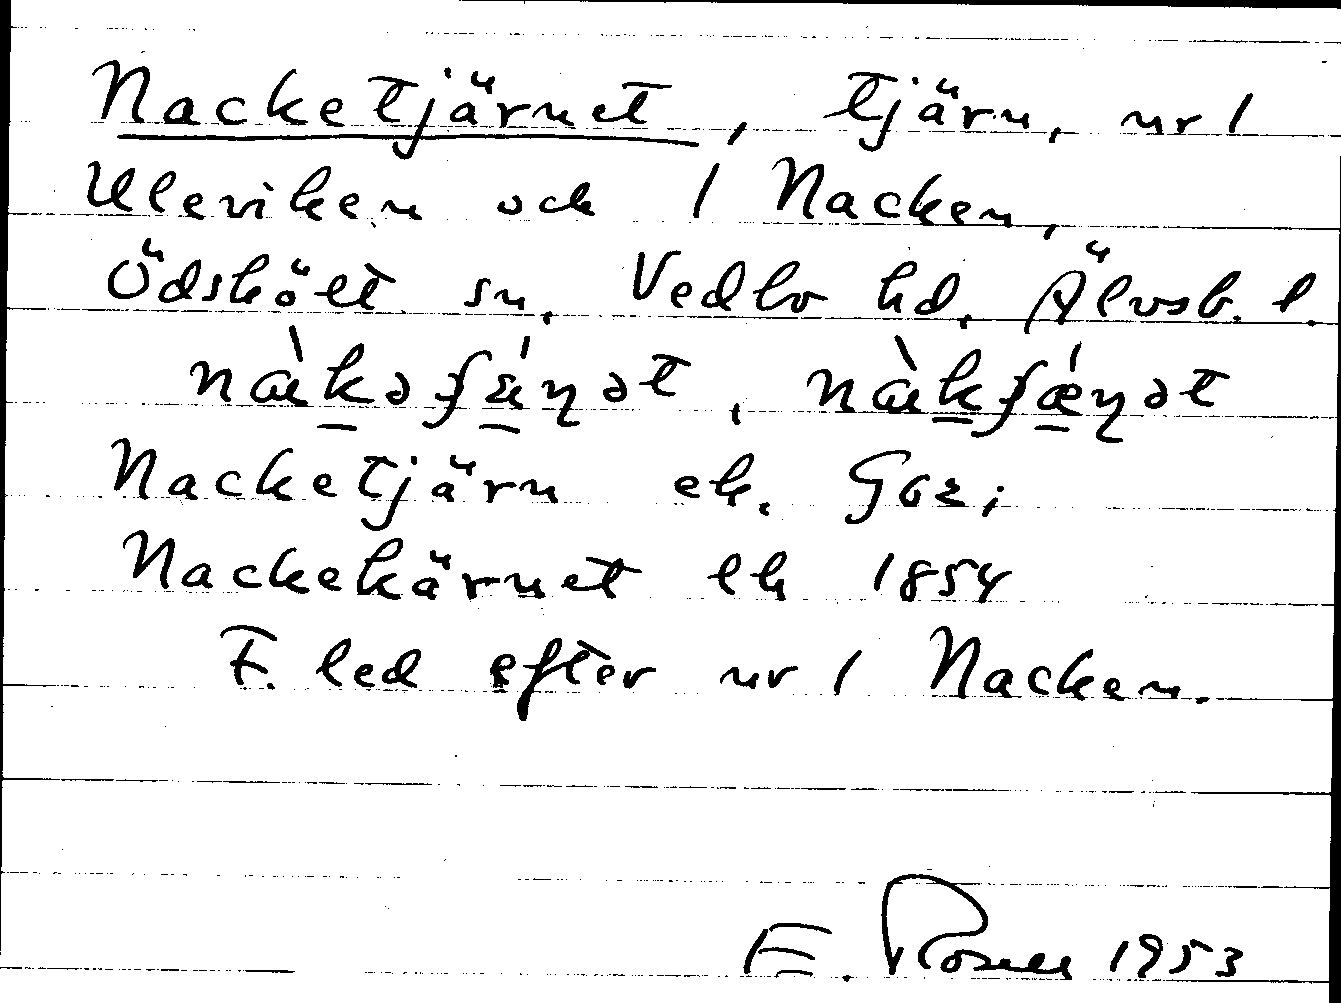 Nacketjärnet, tjärn, nr 1
Uleviken och 1 Nacken,
Ödskölt sn, Vedbo hd, Älvsb. l.
nàkəʃǽɳət, nàkʃǽɳət
Nacketjärn ek. Goz;
Nackekärnet lk 1854
F. led efter nr 1 Nacken.
E. Rosell 1953